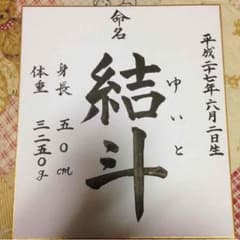 命名
平成二十七年六月二日生
結斗
ゆいと
身長 五0cm
体重 三二五0g